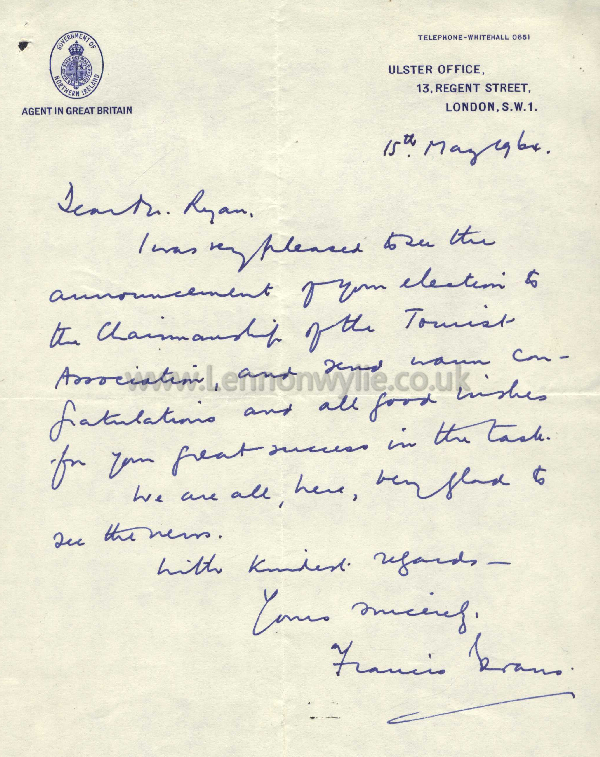 GOVERNMENT OF
NORTHERN IRELAND
AGENT IN GREAT BRITAIN
TELEPHONE-WHITEHALL 0651
ULSTER OFFICE,
13, REGENT STREET,
LONDON, S.W.1.
15th May 1964.
Dear Mr. Ryan.
I was very pleased to see the
announcement of your election to
the Chairmanship of the Tourist
Association, and send warm con-
www.Lennonwylie.co.uk
gratulations and all good wishes
for your great success in the task.
We are all, here, very glad to
see the news.
With kindest regards —
Yours sincerely,
Francis Evans.